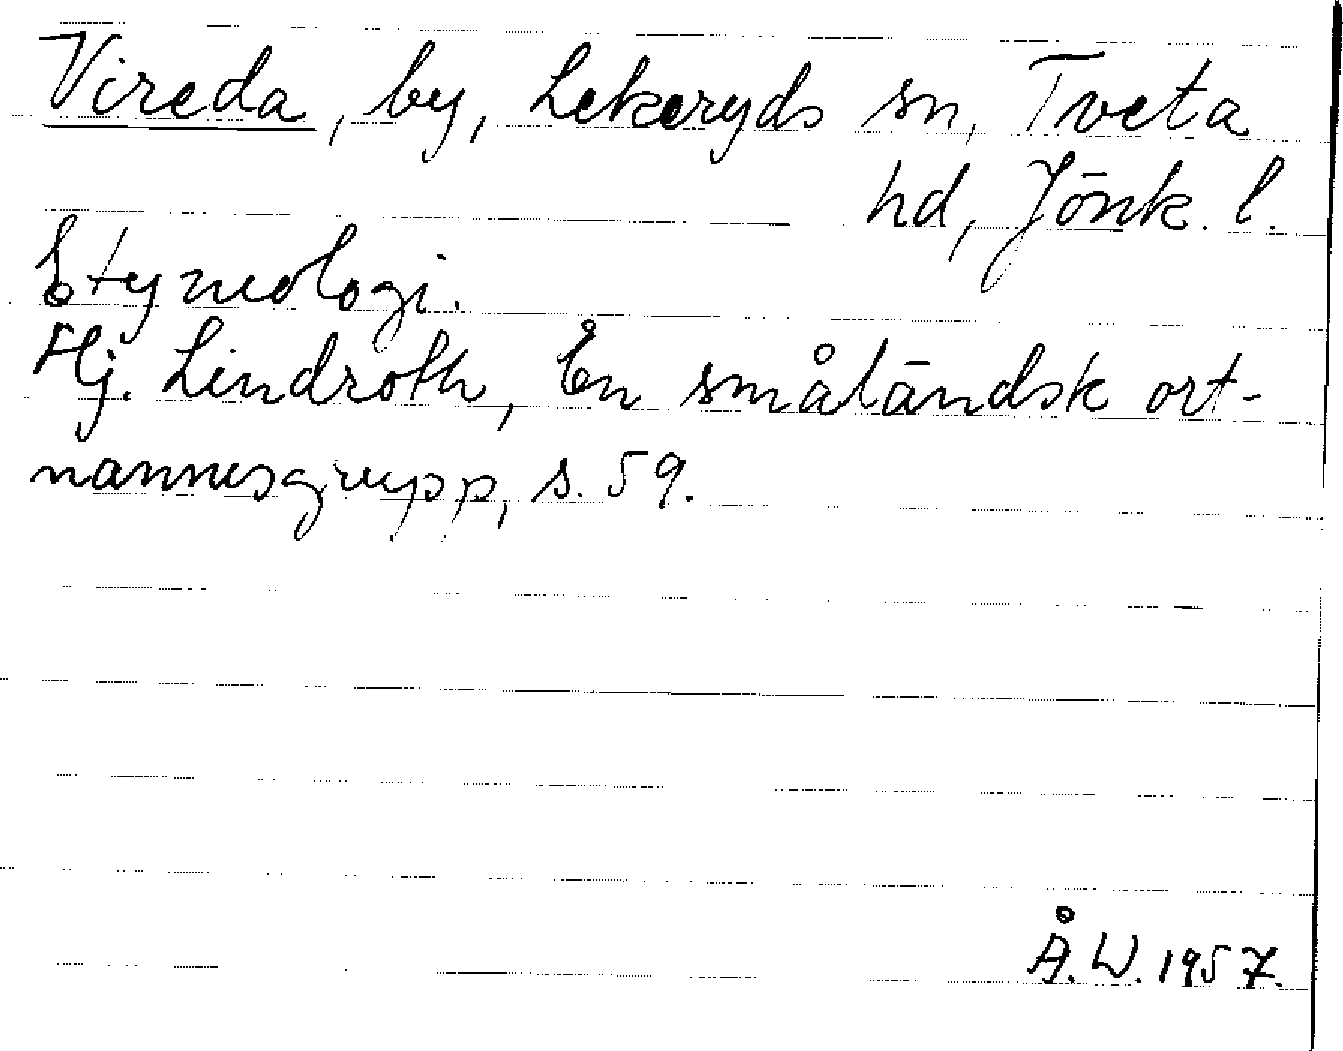 Vireda, by, Lekeryds sn, Tveta
hd, Jönk. l.
Etymologi.
Hj. Lindroth, En småländsk ort-
namnsgrupp, s. 59.
Å.W. 1957.